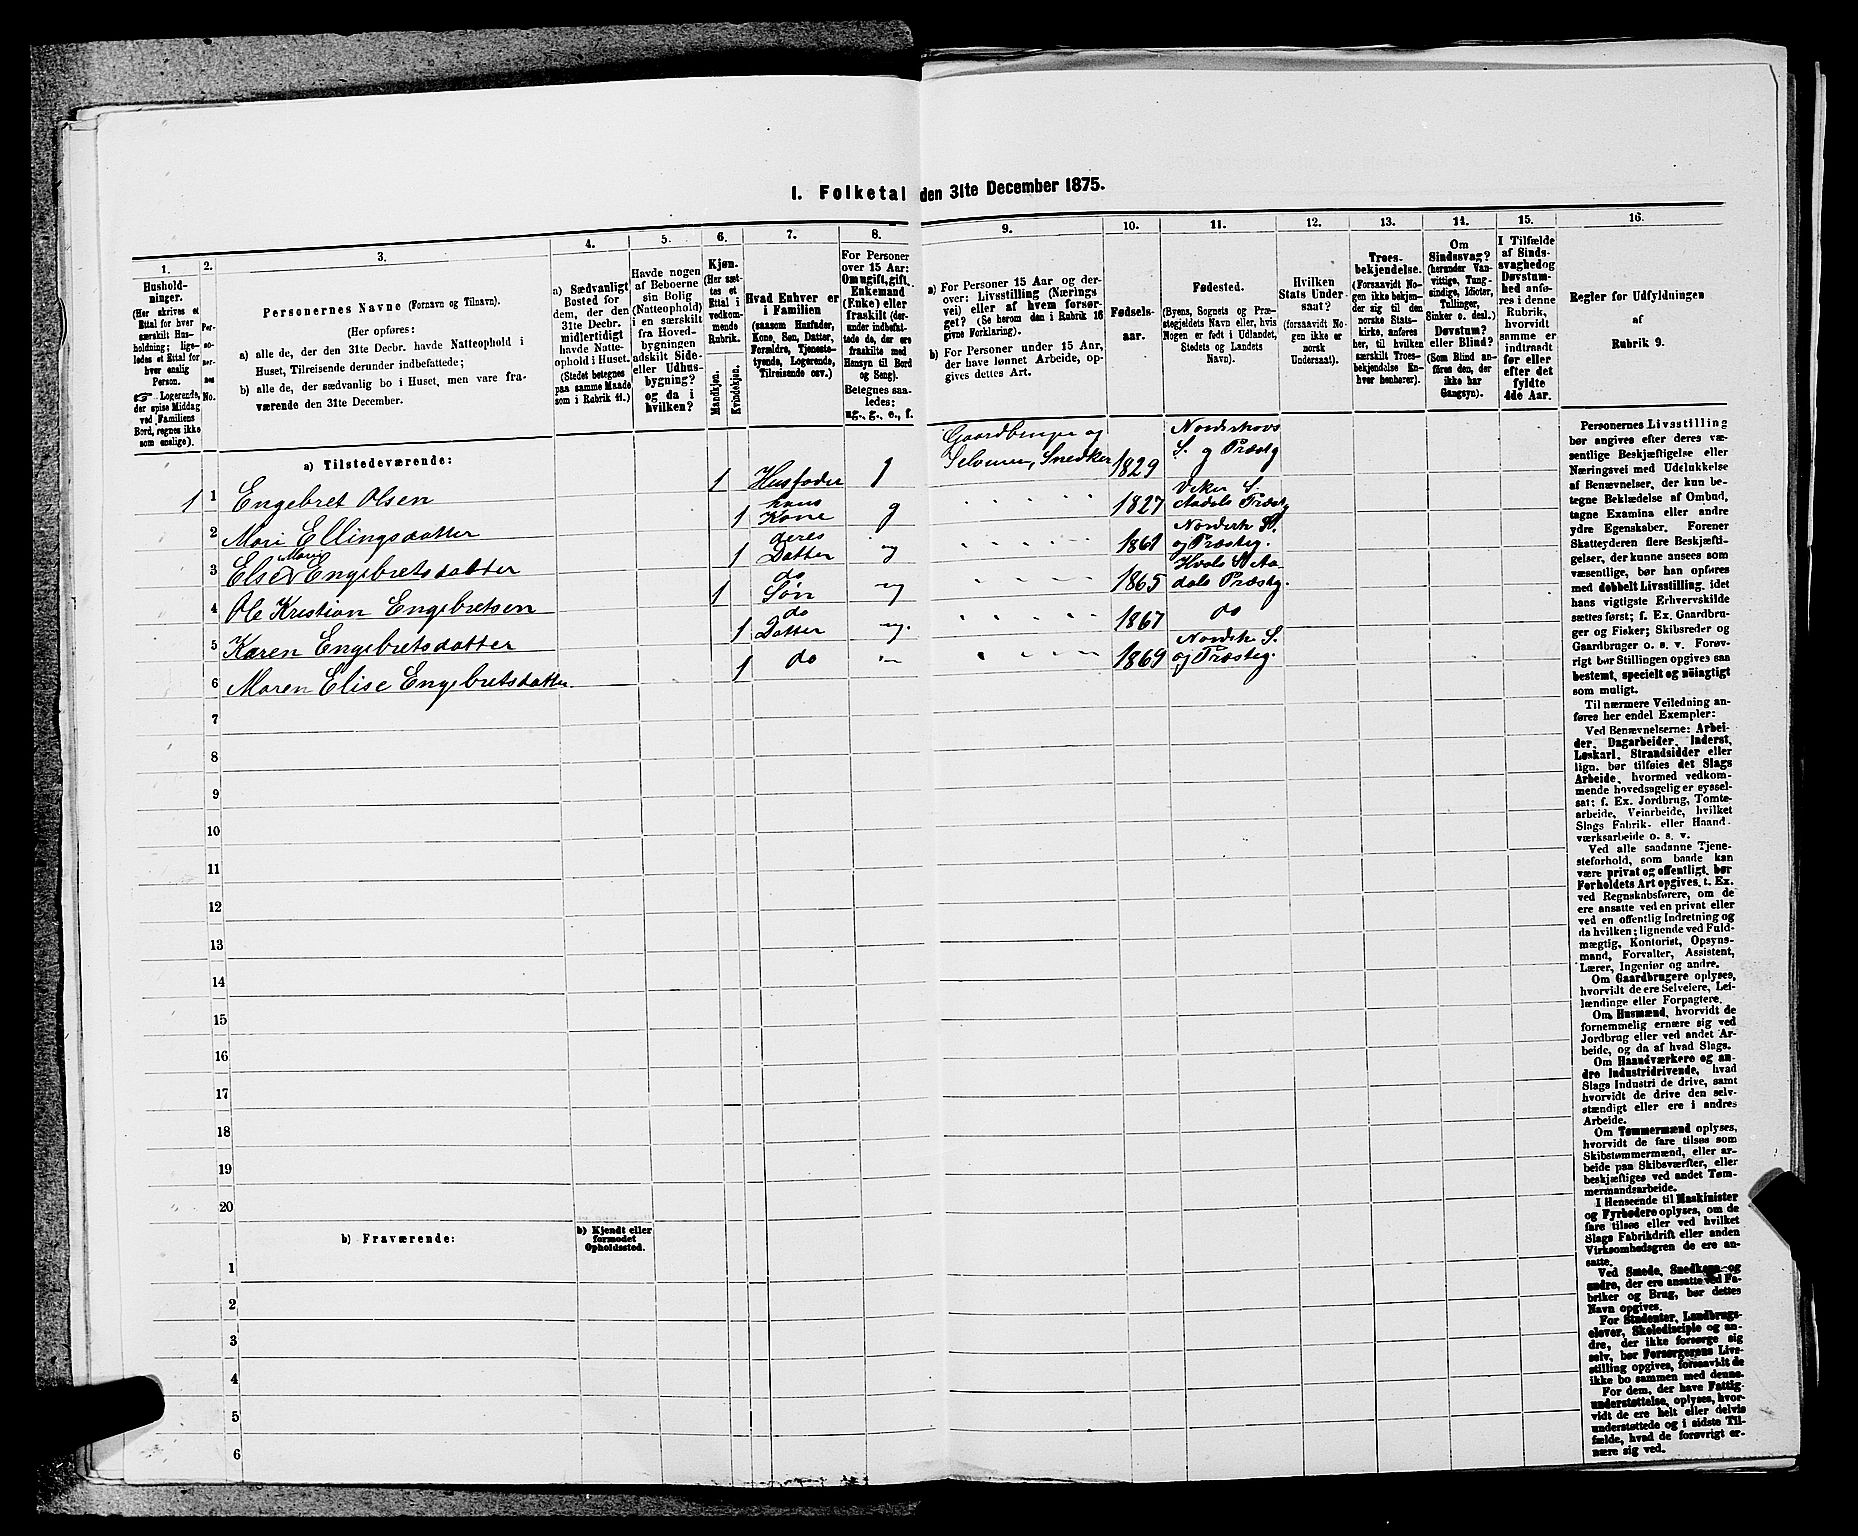 I. Folketal den 31te December 1875.
1.
Hushold-
ninger.
(Her skrives et
Ettal for hver
særskilt Hus-
holdning; lige-
ledes et Ettal for
hver enslig
Person.
Logerende,
der spise Middag
ved Familiens
Bord, regnes ikke
som enslige).
2.
Per-
so-
ner-
nes
No.
3.
Personernes Navne (Fornavn og Tilnavn).
(Her opføres:
a) alle de, der den 31te Decbr. havde Natteophold i
Huset, Tilreisende derunder indbefattede;
b) alle de, der sædvanlig bo i Huset, men vare fra-
værende den 31te December.
4.
a) Sædvanligt
Bosted for
dem, der den
31te Decbr.
midlertidigt
havde Natte-
ophold i Huset.
(Stedet betegnes
paa samme Maade
som i Rubrik 11.)
5.
Havde nogen
af Beboerne
sin Bolig
(Natteophold)
i en særskilt
fra Hoved-
bygningen
adskilt Side-
eller Udhus-
bygning?
og da i
hvilken?
6.
Kjøn.
(Her sæt-
tes et
Ettal i
vedkom-
mende
Rubrik.
Mandkjøn.
Kvindekjøn.
7.
Hvad Enhver er
i Familien
(saasom Husfader,
Kone, Søn, Datter,
Forældre, Tjeneste-
tyende, Logerende,
Tilreisende osv.)
8.
For Personer
over 15 Aar:
Om ugift, gift,
Enkemand
(Enke) eller
fraskilt (der-
under indbefat-
tede de, der ere
fraskilte med
Hensyn til Bord
og Seng).
Betegnes saa-
ledes:
ug., g., e., f.
9.
a) For Personer 15 Aar og der-
over: Livsstilling (Nærings
vei) eller af hvem forsør-
get? (Se herom den i Rubrik 16
givne Forklaring).
b) For Personer under 15 Aar,
der have lønnet Arbeide, op-
gives dettes Art.
10.
Fødsels-
aar.
11.
Fødested.
(Byens, Sognets og Præ-
stegjeldets Navn eller, hvis
Nogen er født i Udlandet,
Stedets og Landets
Navn).
12.
Hvilken
Stats Under-
saat?
(forsaavidt No-
gen ikke er
norsk
Undersaat).
13.
Troes-
bekjendelse.
(Forsaavidt No-
gen ikke bekjen-
der sig til den
norske Stats-
kirke, anføres
her, til hvilken
særskilt Troes-
bekjendelse En-
hver henhører).
14.
Om
Sindssvag?
(herunder Van-
vittige, Tung-
sindige, Idioter,
Tullinger,
Sinker o. desl.)
Døvstum?
eller Blind?
(Som Blind an-
føres den, der
ikke har
Gangsyn).
15.
I Tilfælde
af Sinds-
svaghed og
Døvstum-
hed anfø-
res i denne
Rubrik,
hvorvidt
samme er
indtraadt
før eller
efter det
fyldte
4de Aar.
16.
Regler for Udfyldningen
af
Rubrik 9.
a) Tilstedeværende:
1 1 Engebret Olsen 1 Husfader g Gaardbruger og Selveier, Snedker 1829 Norderhovs S. og Præstg
2 Mari Ellingsdatter 1 hans Kone g 1827 Veker S. Aadals Præstg
3 Else Marie Engebretsdatter 1 deres Datter ug 1861 Norderh S. og Præsteg.
4 Ole Kristian Engebretsen 1 do Søn ug 1865 Hvals S Aadals Præstg.
5 Karen Engebretsdatter 1 do Datter ug. 1867 do
6 Maren Elise Engebretsdatter 1 do 1869 Norderh S. og Præsteg.
7
8
9
10
11
12
13
14
15
16
17
18
19
20
b) Fraværende:
b) Kjendt eller
formodet
Opholdssted.
1
2
3
4
5
6
Personernes Livsstilling
bør angives efter deres væ-
sentlige Beskjæftigelse eller
Næringsvei med Udelukkelse
af Benævnelser, der kun be-
tegne Beklædelse af Ombud,
tagne Examina eller andre
ydre Egenskaber. Forener
Skatteyderen flere Beskjæfti-
gelser, der kunne ansees som
væsentlige, bør han opføres
med dobbelt Livsstilling, idet
hans vigtigste Erhvervskilde
sættes først; f. Ex. Gaardbru-
ger og Fisker; Skibsreder og
Gaardbruger o. s. v. Forøv-
rigt bør Stillingen opgives saa
bestemt, specielt og nøiagtigt
som muligt.
Til nærmere Veiledning an-
føres her endel Exempler:
Ved Benævnelserne: Arbei-
der, Dagarbeider, Inderst,
Løskarl, Strandsidder eller
lign. bør tilføies det Slags
Arbeide, hvormed vedkom-
mende hovedsagelig er syssel-
sat; f. Ex. Jordbrug, Tomte-
arbeide, Veiarbeide, hvilket
Slags Fabrik- eller Haand-
værksarbeide o. s. v.
Ved alle saadanne Tjene-
steforhold, som baade kan
være privat og offentligt, bør
Forholdets Art opgives, t. Ex.
ved Regnskabsførere, om de
ere ansatte ved en privat eller
ved en offentlig Indretning og
da hvilken; lignende ved Fuld-
mægtig, Kontorist, Opsyns-
mand, Forvalter, Assistent,
Lærer, Ingeniør og andre.
Om Gaardbrugere oplyses,
hvorvidt de ere Selveiere, Lei-
lændinge eller Forpagtere.
Om Husmænd, hvorvidt de
fornemmelig ernære sig ved
Jordbrug eller ved andet Ar-
beide, og da af hvad Slags.
Om Haandværkere og an-
dre Industridrivende, hvad
Slags Industri de drive, samt
hvorvidt de drive den selv-
stændigt eller ere i andres
Arbeide.
Om Tømmermænd oplyses,
hvorvidt de fare tilsøs som
Skibstømmermænd, eller ar-
beide paa Skibsværfter, eller
beskjæftiges ved andet Tøm-
mermandsarbeide.
I Henseende til Maskinister
og Fyrbødere oplyses, om de
fare tilsøs eller ved hvilket
Slags Fabrikdrift eller anden
Virksomhedsgren de ere an-
satte.
Ved Smede, Snedkere og
andre, der ere ansatte ved Fa-
briker og Brug, bør dettes
Navn opgives.
For Studenter, Landbrugs-
elever, Skoledisciple og an-
dre, der ikke forsørge sig
selv, bør Forsørgerens Livs-
stilling opgives, forsaavidt de
ikke bo sammen med denne.
For dem, der have Fattig-
understøttelse, oplyses, hvor-
vidt de ere helt eller delvis
understøttede og i sidste Til-
fælde, hvad de forøvrigt er-
nære sig ved.